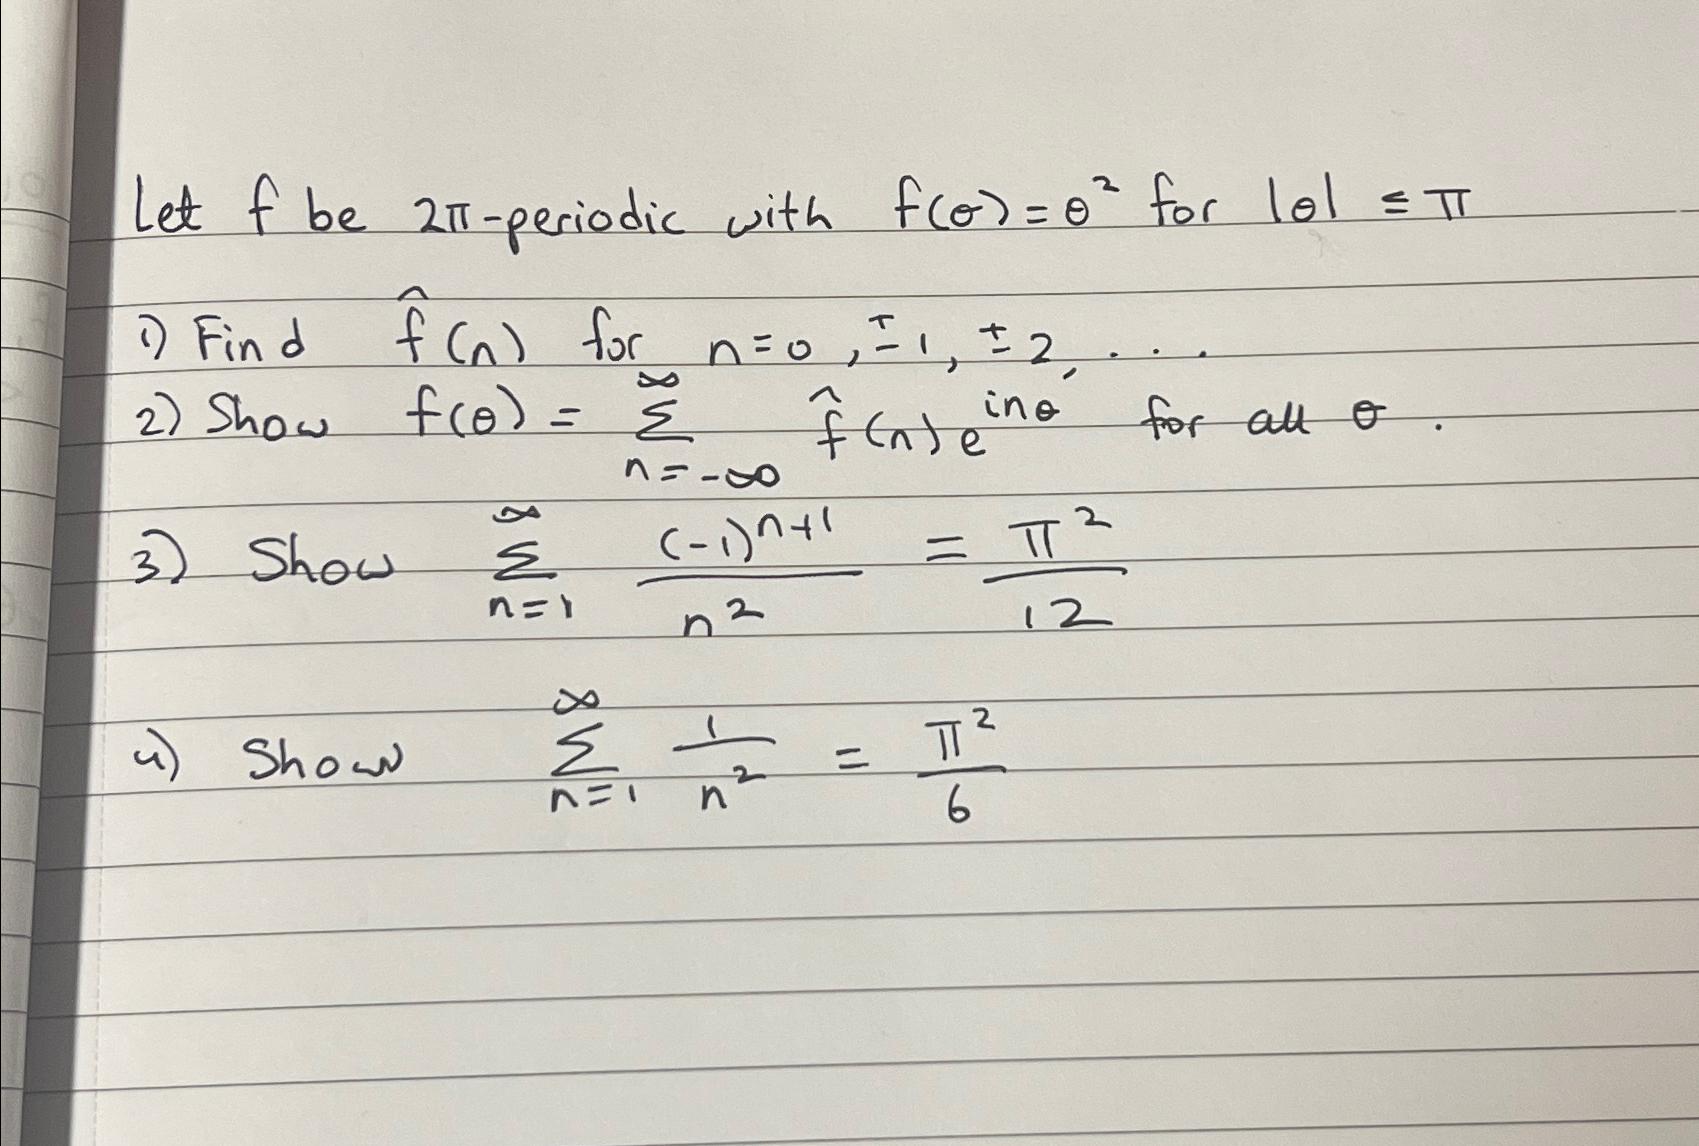 Let f be 2π-periodic with f(θ) = θ² for |θ| ≤ π
1) Find f̂(n) for n=0, ±1, ±2, ...
2) Show f(θ) = ∑_{n=-∞}^{∞} f̂(n) e^{inθ} for all θ.
3) Show ∑_{n=1}^{∞} (-1)^{n+1}/n² = π²/12
4) Show ∑_{n=1}^{∞} 1/n² = π²/6